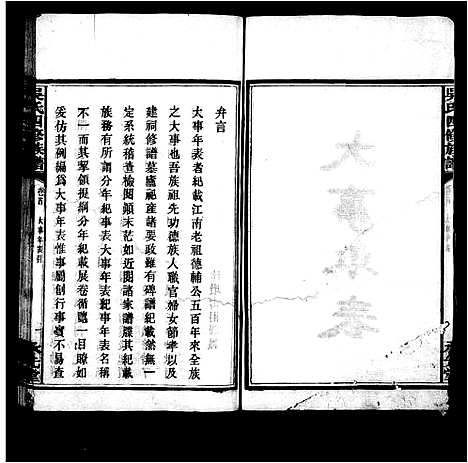 大事年表
吳氏四修族譜
弁言
大事年表者紀載江南老祖德輔公五百年來全族
之大事也吾族祖先功德族人職官婦女節孝以及
建祠修譜墓廬祀產諸要政雖有碑譜紀載然無一
定系統稽查檢閱顛末茫如近閱諸家譜牒其紀載
族務有所謂分年紀事表大事年表紀事年表名稱
不一而其掣領提綱分年紀載展卷循臨一目瞭如
爰仿其例編爲大事年表惟事屬創行事實不易查
吳氏四修族譜
卷首
大事年表